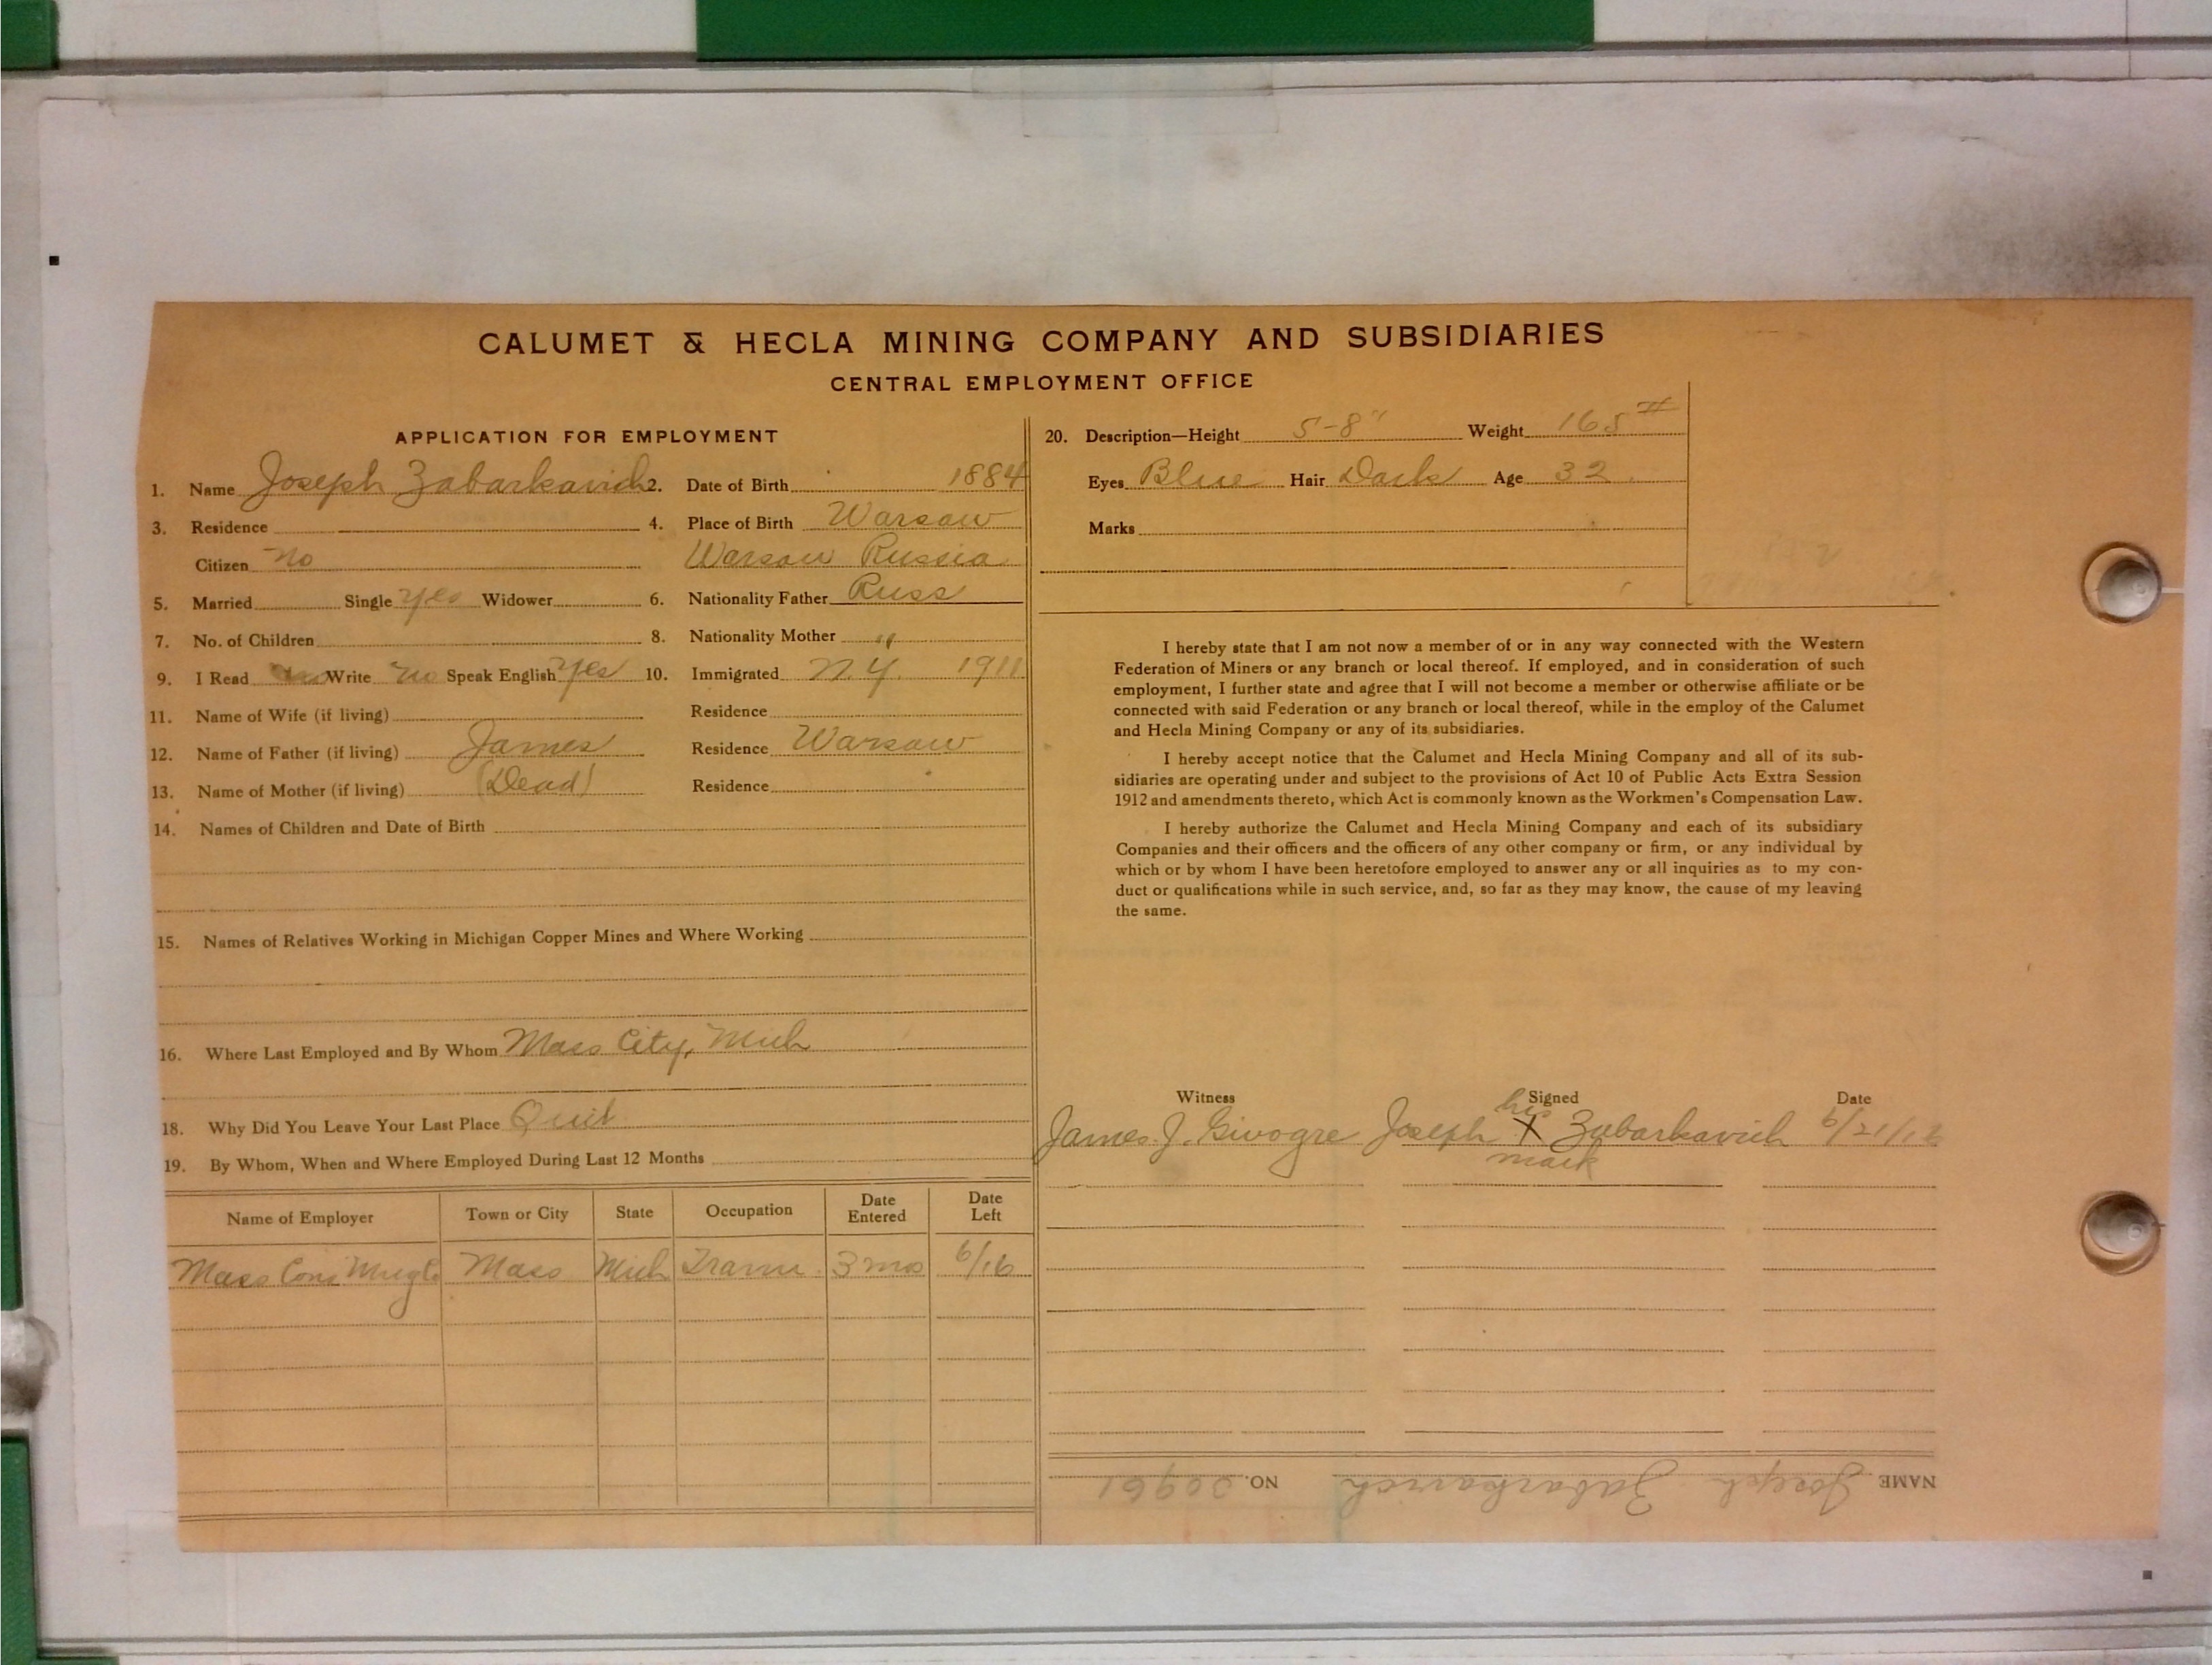 CALUMET & HECLA MINING COMPANY AND SUBSIDIARIES
CENTRAL EMPLOYMENT OFFICE
APPLICATION FOR EMPLOYMENT
1. Name Joseph Zabarkavich 2. Date of Birth 1884
3. Residence 4. Place of Birth Warsaw
Citizen no Warsaw Russia
5. Married Single yes Widower 6. Nationality Father Russ
7. No. of Children 8. Nationality Mother "
9. I Read Write no Speak English yes 10. Immigrated N.Y. 1911
11. Name of Wife (if living) Residence
12. Name of Father (if living) James Residence Warsaw
13. Name of Mother (if living) (Dead) Residence
14. Names of Children and Date of Birth
15. Names of Relatives Working in Michigan Copper Mines and Where Working
16. Where Last Employed and By Whom Mass City, Mich
18. Why Did You Leave Your Last Place Quit
19. By Whom, When and Where Employed During Last 12 Months
Name of Employer Town or City State Occupation Date Entered Date Left
Mass Cons Mass Mich 3 mos 6/16
20. Description—Height 5-8" Weight 165 #
Eyes Blue Hair Dark Age 32
Marks
I hereby state that I am not now a member of or in any way connected with the Western
Federation of Miners or any branch or local thereof. If employed, and in consideration of such
employment, I further state and agree that I will not become a member or otherwise affiliate or be
connected with said Federation or any branch or local thereof, while in the employ of the Calumet
and Hecla Mining Company or any of its subsidiaries.
I hereby accept notice that the Calumet and Hecla Mining Company and all of its sub-
sidiaries are operating under and subject to the provisions of Act 10 of Public Acts Extra Session
1912 and amendments thereto, which Act is commonly known as the Workmen's Compensation Law.
I hereby authorize the Calumet and Hecla Mining Company and each of its subsidiary
Companies and their officers and the officers of any other company or firm, or any individual by
which or by whom I have been heretofore employed to answer any or all inquiries as to my con-
duct or qualifications while in such service, and, so far as they may know, the cause of my leaving
the same.
Witness Signed Date
his
James J. Joseph X Zabarkavich 6/21/16
mark
NAME Joseph Zabarkavich NO. 20961